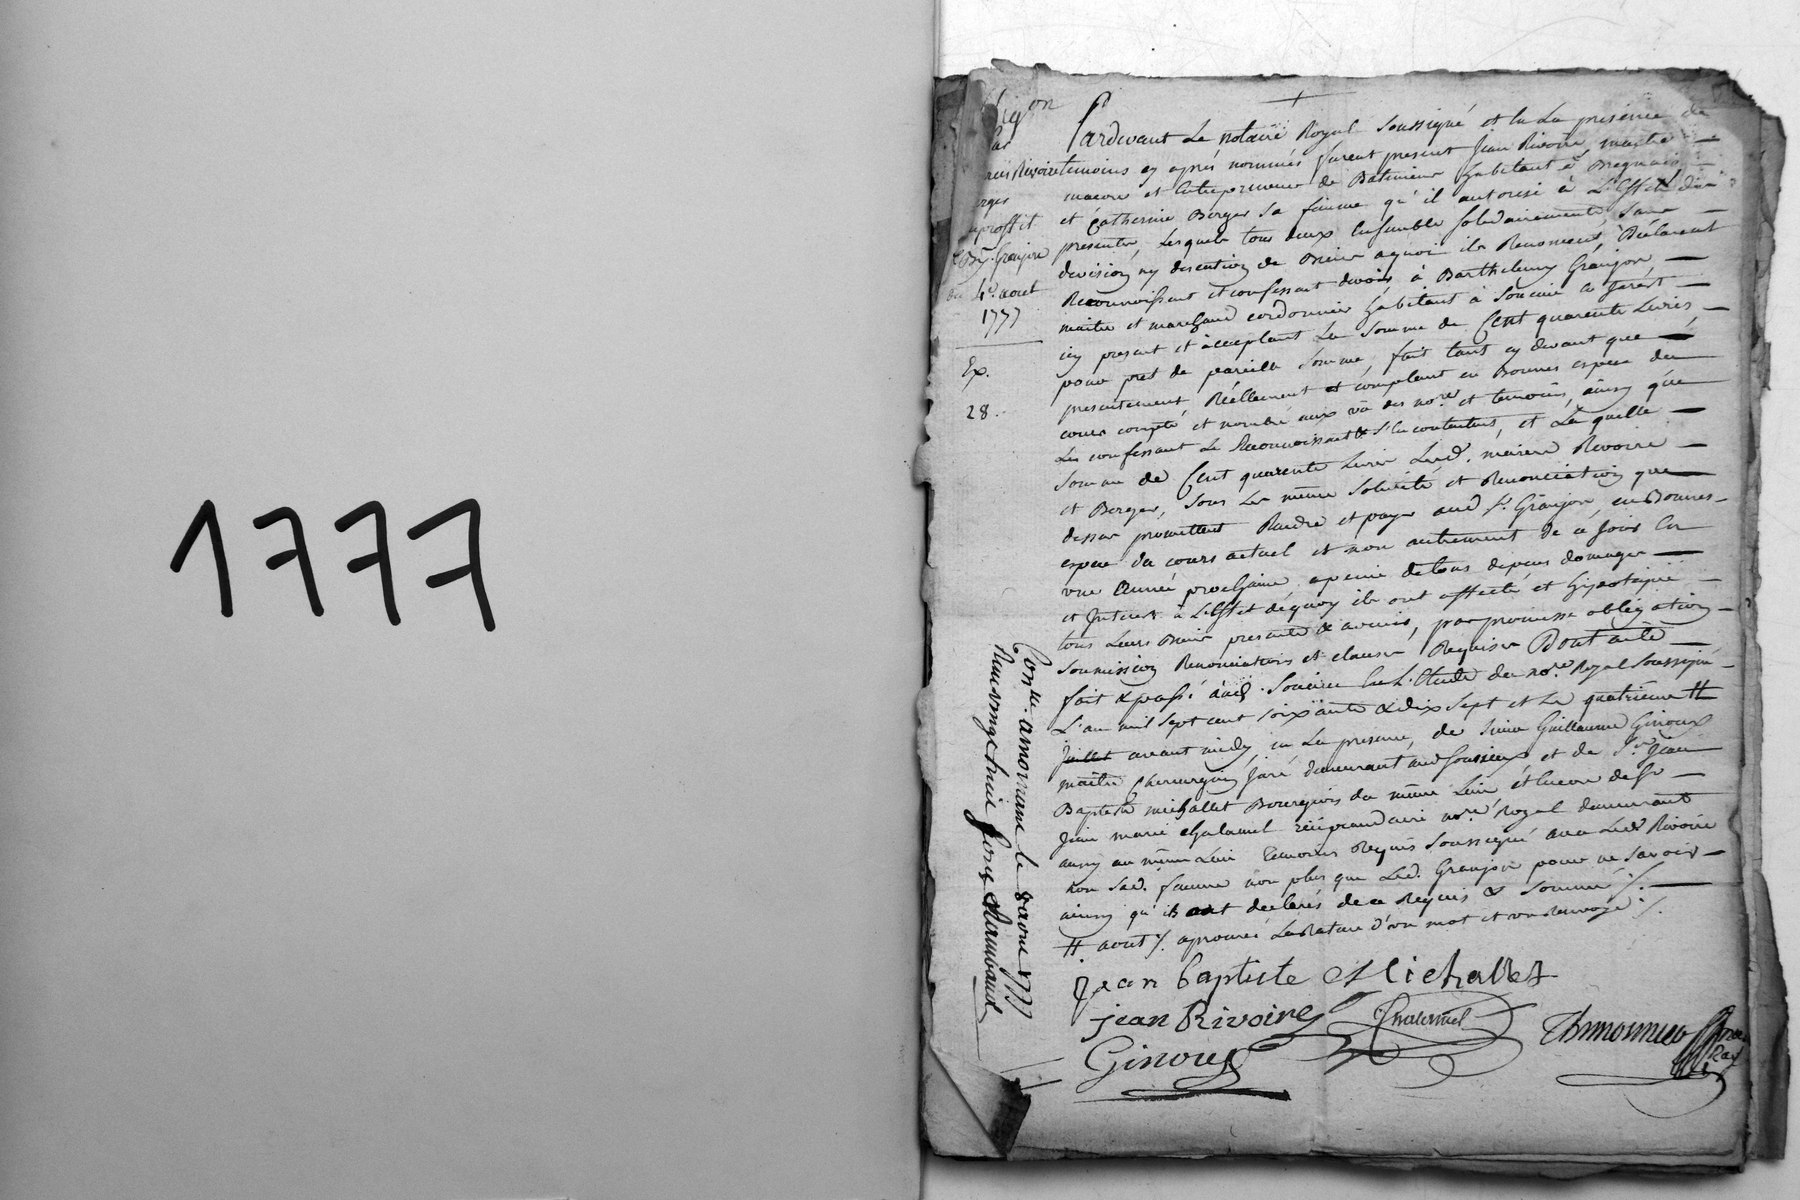 1777
[Obl]igon
par
Jean Rivoire
Berges
au proffit
de By. Granjon
du 4e. aout
1777
Ex.
28.
Pardevant Le notaire Royal Soussigné et en La présence de
temoins cy après nommés furent present Jean Rivoire, maitre
macon et Entrepreneur de Batiment habitant à Bregnais
et Catherine Berger Sa femme qu'il autorise à L'effet des
presente, Lesquels tous deux Ensemble solidairement sans
division ny discution de Biens aquoi ils Renoncent, Déclarent
Reconnoissent et confessent devoir à Barthelemy Granjon
maitre et marchand cordonnier habitant à Soucieu en Jarést
icy present et acceptant La Somme de Cent quarente Livres,
pour pret de pareille Somme, fait tant cy devant que
presentement Réellement et comptant en Bonnes espece du
cours compté et nombré aux vû des nore. et temoins, ainsy que
Les confessant Le Reconnoissant & S'en contentent, et La quelle
Somme de Cent quarente Livres Lesd. mariés Rivoire
et Berger, Sous La même Solidité et Renonciation que
dessus promettent Rendre et payer aud Sr. Granjon, en Bonnes
espece du cours actuel et non autrement de ce Jour En
une Année prochaine, apeine de tous depens domages
et Interest à L'effet dequoy ils ont affecté et hipotequé
tous Leurs Biens presents & avenir, par promesse obligation
Soumission Renonciations et clauses Requises Dont acte
fait & passé aud. Soucieu En L'Etude du nore. Royal Soussigné
L'an mil Sept cent Soixante & dix Sept et Le quatrieme #
Juillet avant midy, en La presence, de Sieur Guillaume Ginoux
maitre Chirurgien Juré demeurant aud Soussieux et de Sr. Jean
Baptiste michallet Bourgeois du même Lieu et Encore de Sr
Jean marie Chalamel recipiendaire nore. Royal demeurant
aussy au même Lieu temoins Requis Soussigné avec Led. Rivoire
non Sad. femme non plus que Led. Granjon pour ne Savoir
ainsy qu'ils ont declarés de ce Requis & Sommé ./.
# aout ./. aprouvé La Rature d'un mot et un Renvoye ./.
Conlle. amornant le 8 aout 1777
Jean baptiste Michallet
jean Rivoire
Chalamel
Ginoux